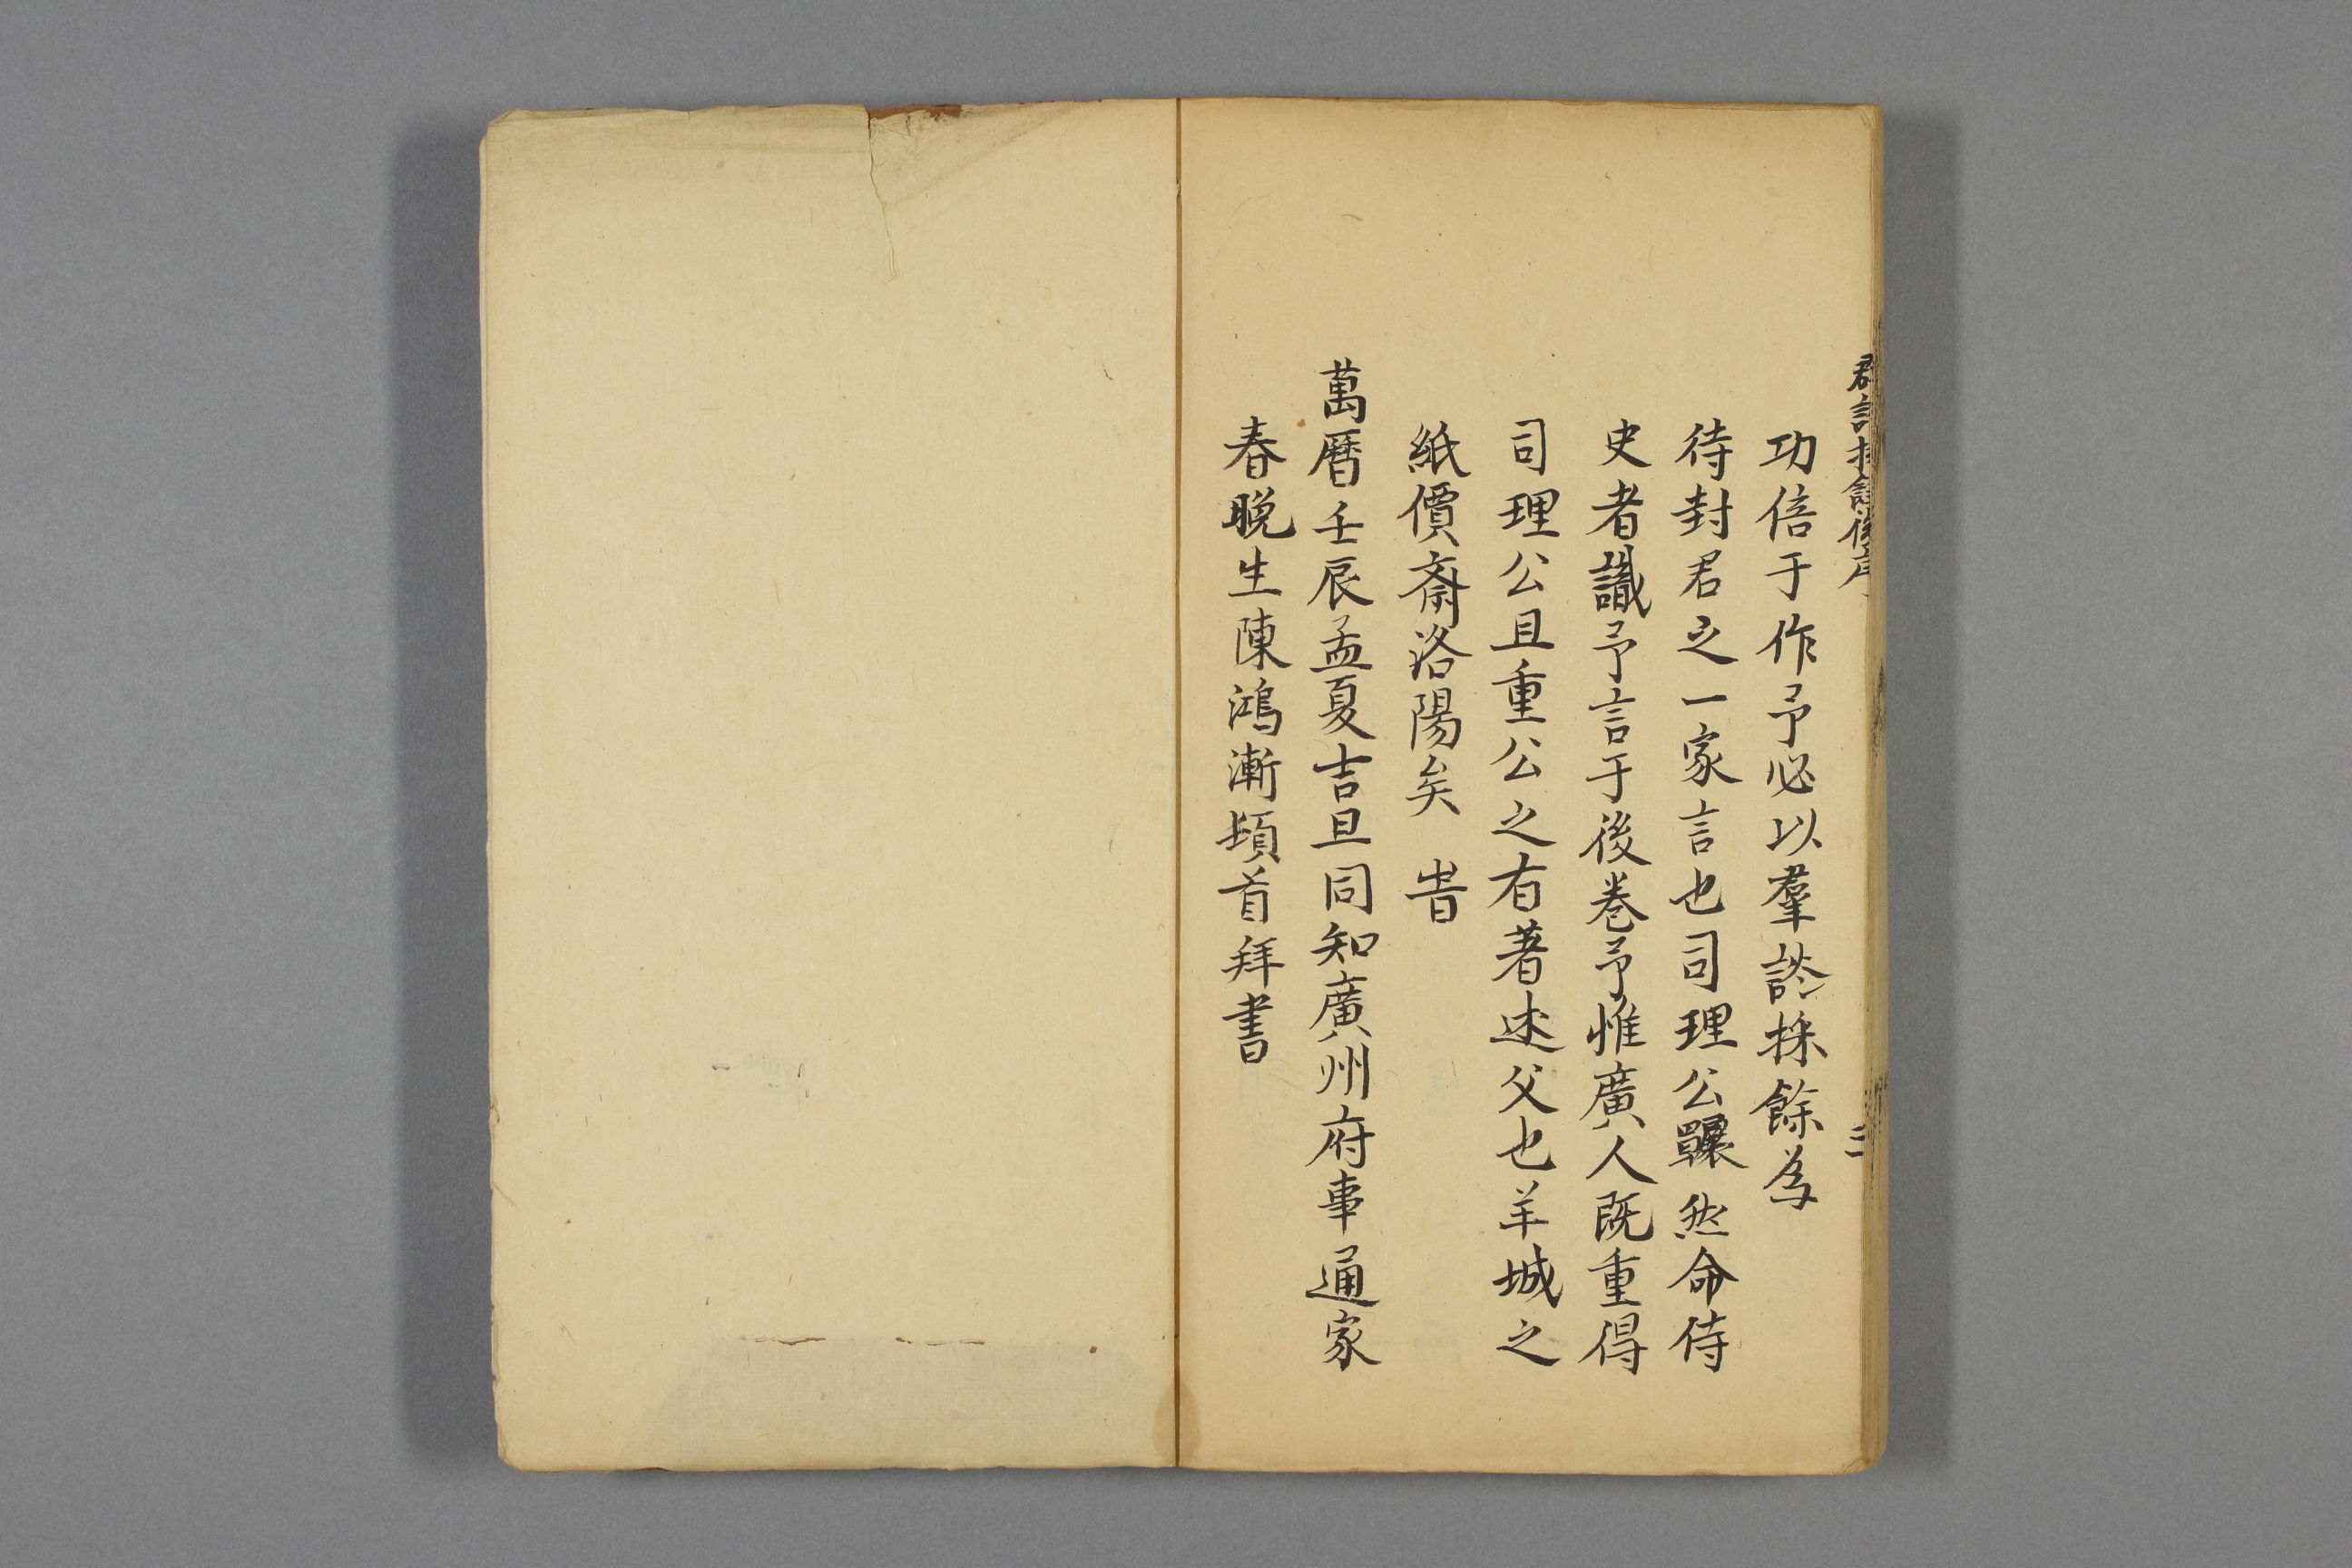 功倍于作予必以羣談採餘為
待封君之一家言也司理公囅然命侍
史者識予言于後卷予惟廣人既重得
司理公且重公之有著述父也羊城之
紙價齋洛陽矣 旹
萬曆壬辰孟夏吉旦同知廣州府事通家
春晚生陳鴻漸頓首拜書